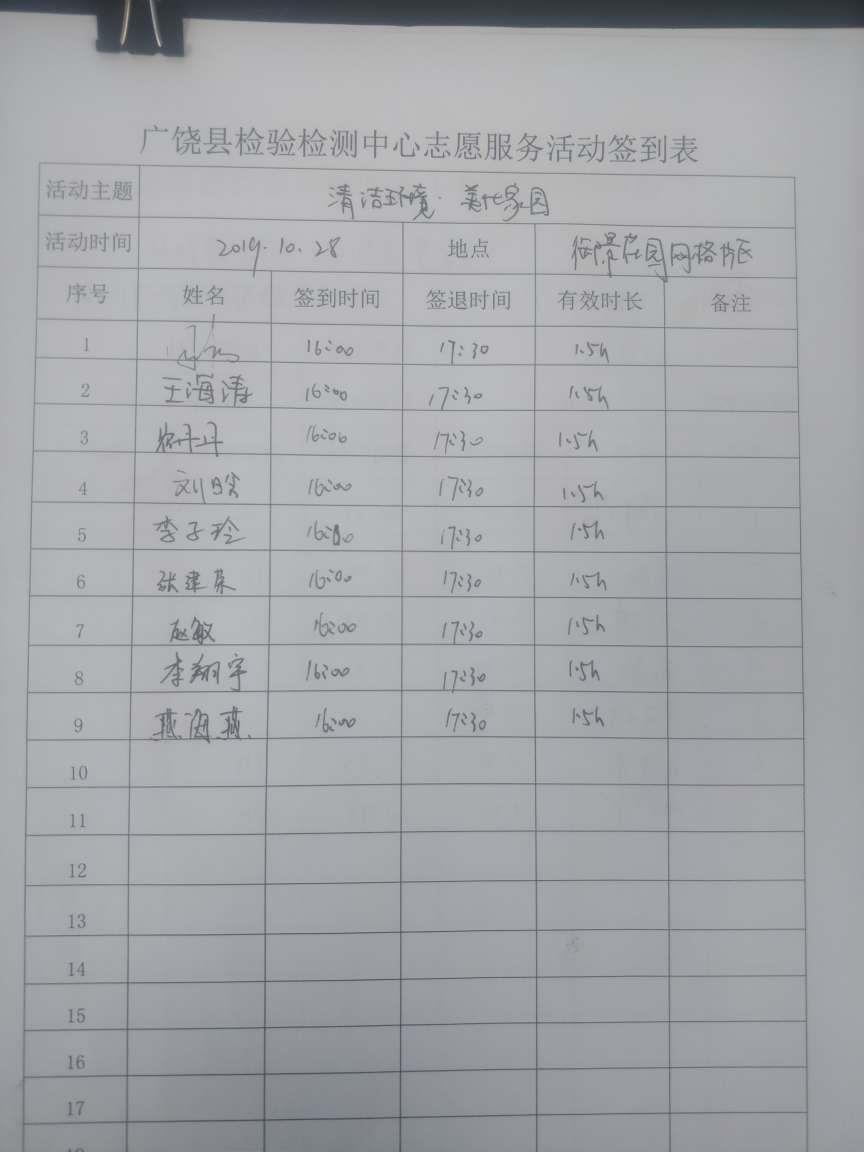 广饶县检验检测中心志愿服务活动签到表
活动主题 清洁环境·美化家园
活动时间 2019.10.28 地点 御景花园网格片区
序号 姓名 签到时间 签退时间 有效时长 备注
1 16:00 17:30 1.5h
2 王海涛 16:00 17:30 1.5h
3 16:00 17:30 1.5h
4 16:00 17:30 1.5h
5 李子玲 16:00 17:30 1.5h
6 张建英 16:00 17:30 1.5h
7 赵敏 16:00 17:30 1.5h
8 李翔宇 16:00 17:30 1.5h
9 燕海燕 16:00 17:30 1.5h
10
11
12
13
14
15
16
17